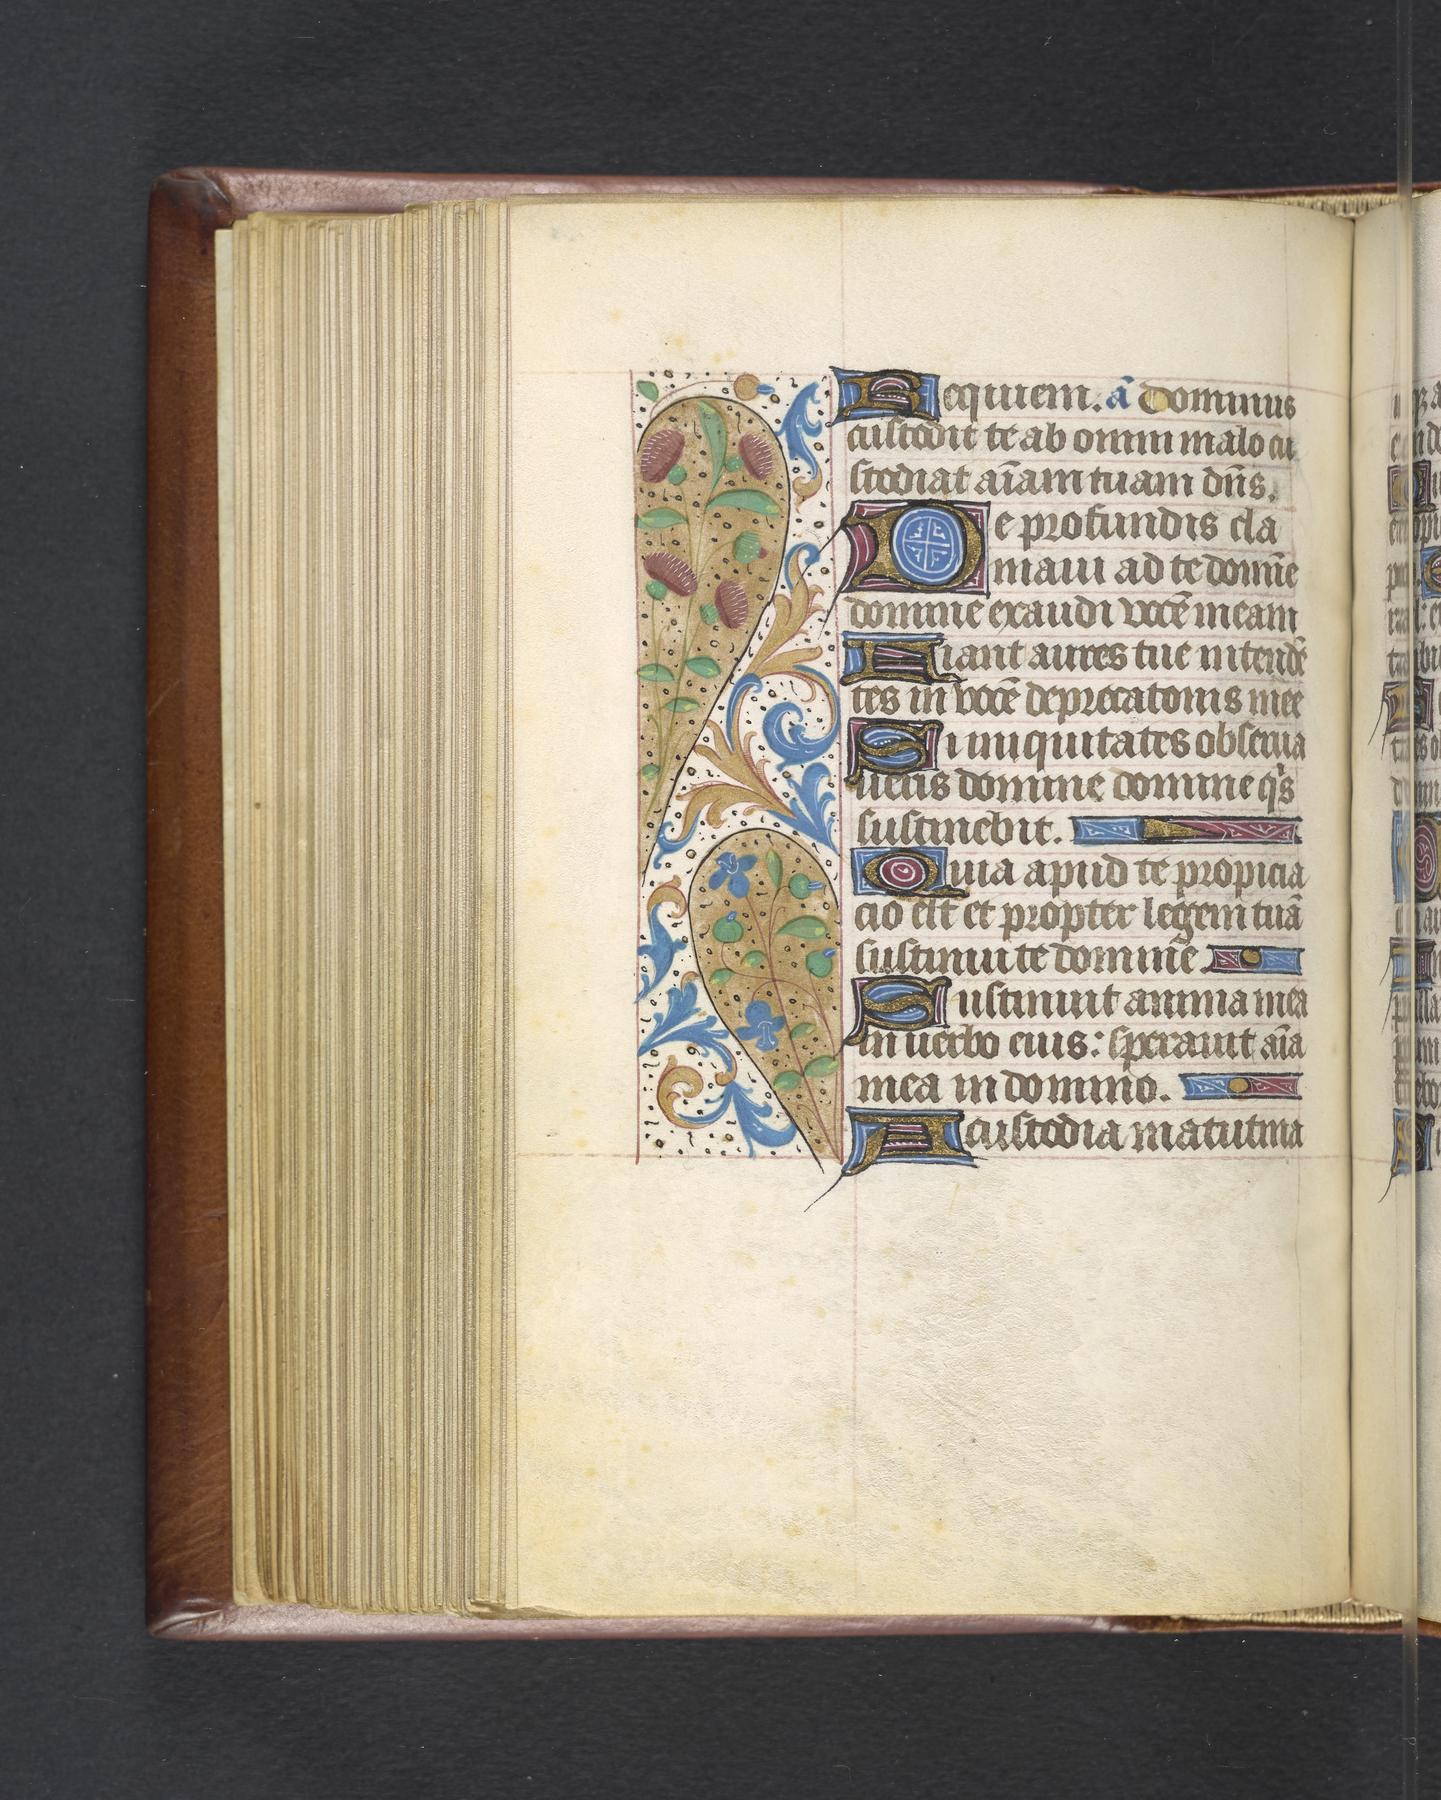 Requiem. añ Dominus
custodit te ab omni malo cu
stodiat aīam tuam dñs.
De profundis cla
maui ad te domīe
domine exaudi vocē meam
Fiant aures tue intendē
tes in vocē deprecationis mee
Si iniquitates obserua
ueris domine domine qͥs
sustinebit.
Quia apud te propicia
cio est et propter legem tuā
sustinui te domine
Sustinuit anima mea
in uerbo eius: sperauit aīa
mea in domino.
A custodia matutina